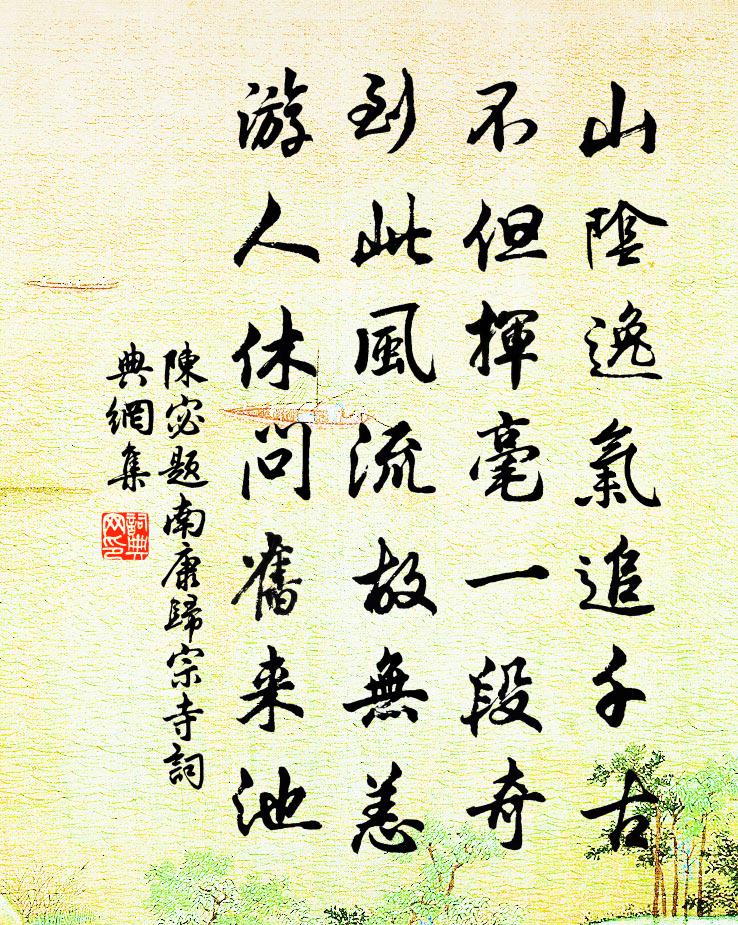 山陰逸氣追千古
不但揮毫一段奇
到此風流故無恙
游人休問舊来池
陳宓題南康歸宗寺詞
典網集
詞典
网印